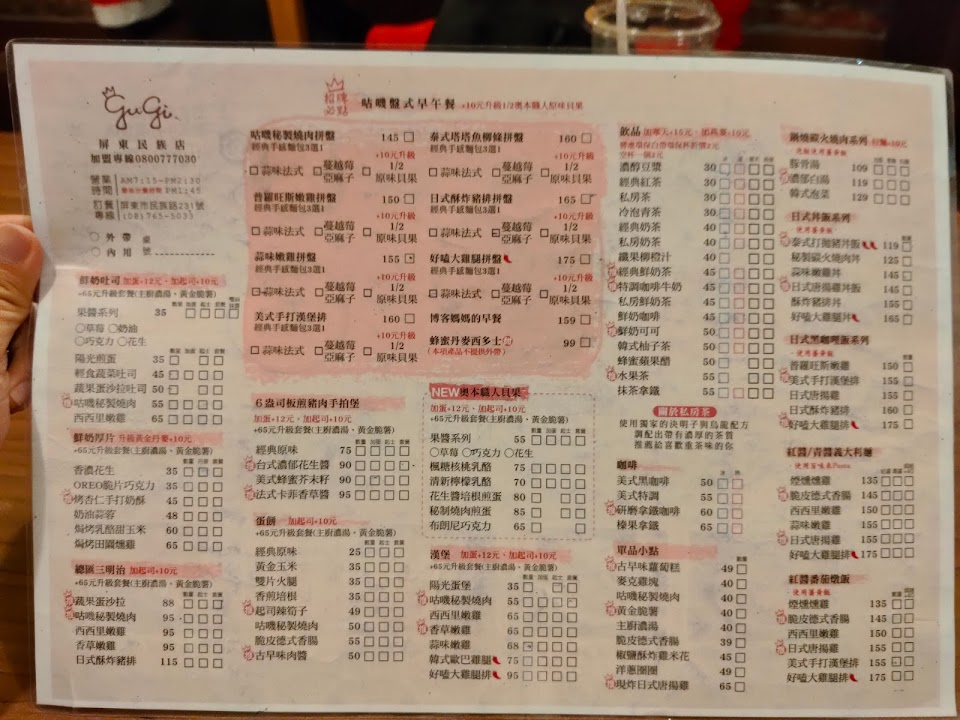 GuGi.
屏東民族店
加盟專線0800777030
營業時間 AM7:15-PM2:30
PM1:45
訂餐專線 屏東市民族路231號
(08)765-5033
○外帶 桌
○內用 號
招牌必點
咕嘰盤式早午餐 +10元升級1/2奧本職人原味貝果
咕嘰秘製燒肉拼盤 145
經典手感麵包3選1
+10元升級
蒜味法式 蔓越莓亞麻子 1/2原味貝果
普羅旺斯嫩雞拼盤 150
經典手感麵包3選1
+10元升級
蒜味法式 蔓越莓亞麻子 1/2原味貝果
蒜味嫩雞拼盤 155
經典手感麵包3選1
+10元升級
蒜味法式 蔓越莓亞麻子 1/2原味貝果
美式手打漢堡排 160
經典手感麵包3選1
+10元升級
蒜味法式 蔓越莓亞麻子 1/2原味貝果
泰式塔塔魚柳條拼盤 160
經典手感麵包3選1
+10元升級
蒜味法式 蔓越莓亞麻子 1/2原味貝果
日式酥炸豬排拼盤 165
經典手感麵包3選1
+10元升級
蒜味法式 蔓越莓亞麻子 1/2原味貝果
好嗑大雞腿拼盤 175
經典手感麵包3選1
+10元升級
蒜味法式 蔓越莓亞麻子 1/2原味貝果
博客媽媽的早餐 159
蜂蜜丹麥西多士 99
(本項產品不提供外帶)
鮮奶吐司 加蛋+12元、加起司+10元
+65元升級套餐(主廚濃湯、黃金脆薯)
果醬系列 35
○草莓 ○奶油
○巧克力 ○花生
陽光煎蛋 35
輕食蔬菜吐司 45
蔬果蛋沙拉吐司 50
咕嘰秘製燒肉 55
西西里嫩雞 65
鮮奶厚片 升級黃金丹麥+10元
香濃花生 35
OREO脆片巧克力 35
烤杏仁手打奶酥 45
奶油蒜蓉 48
焗烤乳酪甜玉米 60
焗烤田園燻雞 65
總匯三明治 加起司+10元
+65元升級套餐(主廚濃湯、黃金脆薯)
蔬果蛋沙拉 88
咕嘰秘製燒肉 95
西西里嫩雞 95
香草嫩雞 95
日式酥炸豬排 115
6盎司板煎豬肉手拍堡
加蛋+12元、加起司+10元
+65元升級套餐(主廚濃湯、黃金脆薯)
經典原味 75
台式濃郁花生醬 90
美式蜂蜜芥末籽 90
法式卡菲香草醬 95
蛋餅 加起司+10元
+65元升級套餐(主廚濃湯、黃金脆薯)
經典原味 25
黃金玉米 35
雙片火腿 35
香煎培根 35
起司辣筍子 49
咕嘰秘製燒肉 50
脆皮德式香腸 55
古早味肉醬 50
NEW奧本職人貝果
加蛋+12元、加起司+10元
+65元升級套餐(主廚濃湯、黃金脆薯)
果醬系列 55
○草莓 ○巧克力 ○花生
楓糖核桃乳酪 75
清新檸檬乳酪 70
花生醬培根煎蛋 80
秘制燒肉煎蛋 85
布朗尼巧克力 65
漢堡 加蛋+12元、加起司+10元
+65元升級套餐(主廚濃湯、黃金脆薯)
陽光蛋堡 35
咕嘰秘製燒肉 55
西西里嫩雞 65
香草嫩雞 65
蒜味嫩雞 68
韓式歐巴雞腿 75
好嗑大雞腿排 95
飲品 加寒天+15元、加燕麥+10元
濃醇豆漿 30
經典紅茶 30
私房茶 30
冷泡青茶 30
經典奶茶 30
私房奶茶 30
纖果柳橙汁 40
經典鮮奶茶 45
特調咖啡牛奶 45
私房鮮奶茶 45
鮮奶咖啡 45
鮮奶可可 50
韓式柚子茶 50
蜂蜜蘋果醋 50
水果茶 55
抹茶拿鐵 55
關於私房茶
使用獨家的決明子與烏龍配方
調配出帶有濃厚的茶質
推薦給喜歡重茶味的你
咖啡
美式黑咖啡 50
美式特調 55
研磨拿鐵咖啡 60
榛果拿鐵 65
單品小點
古早味蘿蔔糕 49
麥克雞塊 40
咕嘰秘製燒肉 40
黃金脆薯 40
主廚濃湯 40
脆皮德式香腸 39
椒鹽酥炸雞米花 45
洋蔥圈圈 49
現炸日式唐揚雞 65
鍋燒碳火燒肉系列 拉麵+10元
豚骨湯 109
濃郁白湯 119
韓式泡菜 129
日式丼飯系列
·使用薏蕎飯
泰式打拋豬丼飯 119
秘製碳火燒肉丼 125
蒜味嫩雞丼 145
日式唐揚雞丼飯 145
酥炸豬排丼 155
好嗑大雞腿丼 165
日式黑咖哩飯系列
·使用薏蕎飯
普羅旺斯嫩雞 150
美式手打漢堡排 155
日式唐揚雞 155
日式酥炸豬排 160
好嗑大雞腿排 175
紅醬/青醬義大利麵
煙燻燻雞 135
脆皮德式香腸 145
西西里嫩雞 150
蒜味嫩雞 155
日式唐揚雞 155
好嗑大雞腿排 175
紅醬番茄燉飯
·使用薏蕎飯
煙燻燻雞 135
脆皮德式香腸 145
西西里嫩雞 150
日式唐揚雞 155
美式手打漢堡排 155
好嗑大雞腿排 175